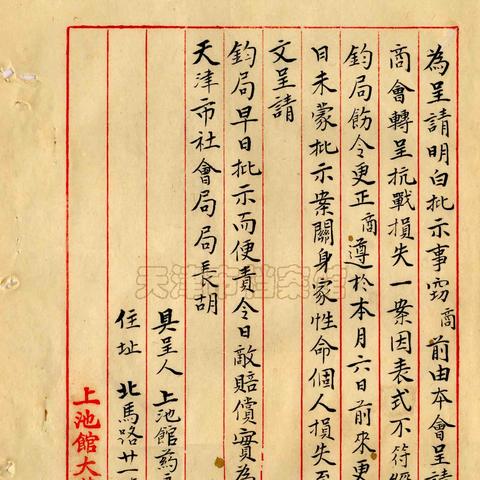 為呈請明白批示事竊商前由本會呈請
商會轉呈抗戰損失一案因表式不符經
鈞局飭令更正商遵於本月六日前來更
日未蒙批示案關身家性命個人損失至
文呈請
鈞局早日批示而便責令日敵賠償實為
天津市社會局局長胡
具呈人 上池館葯
住址 北馬路廿一
上池館大
天津市档案馆